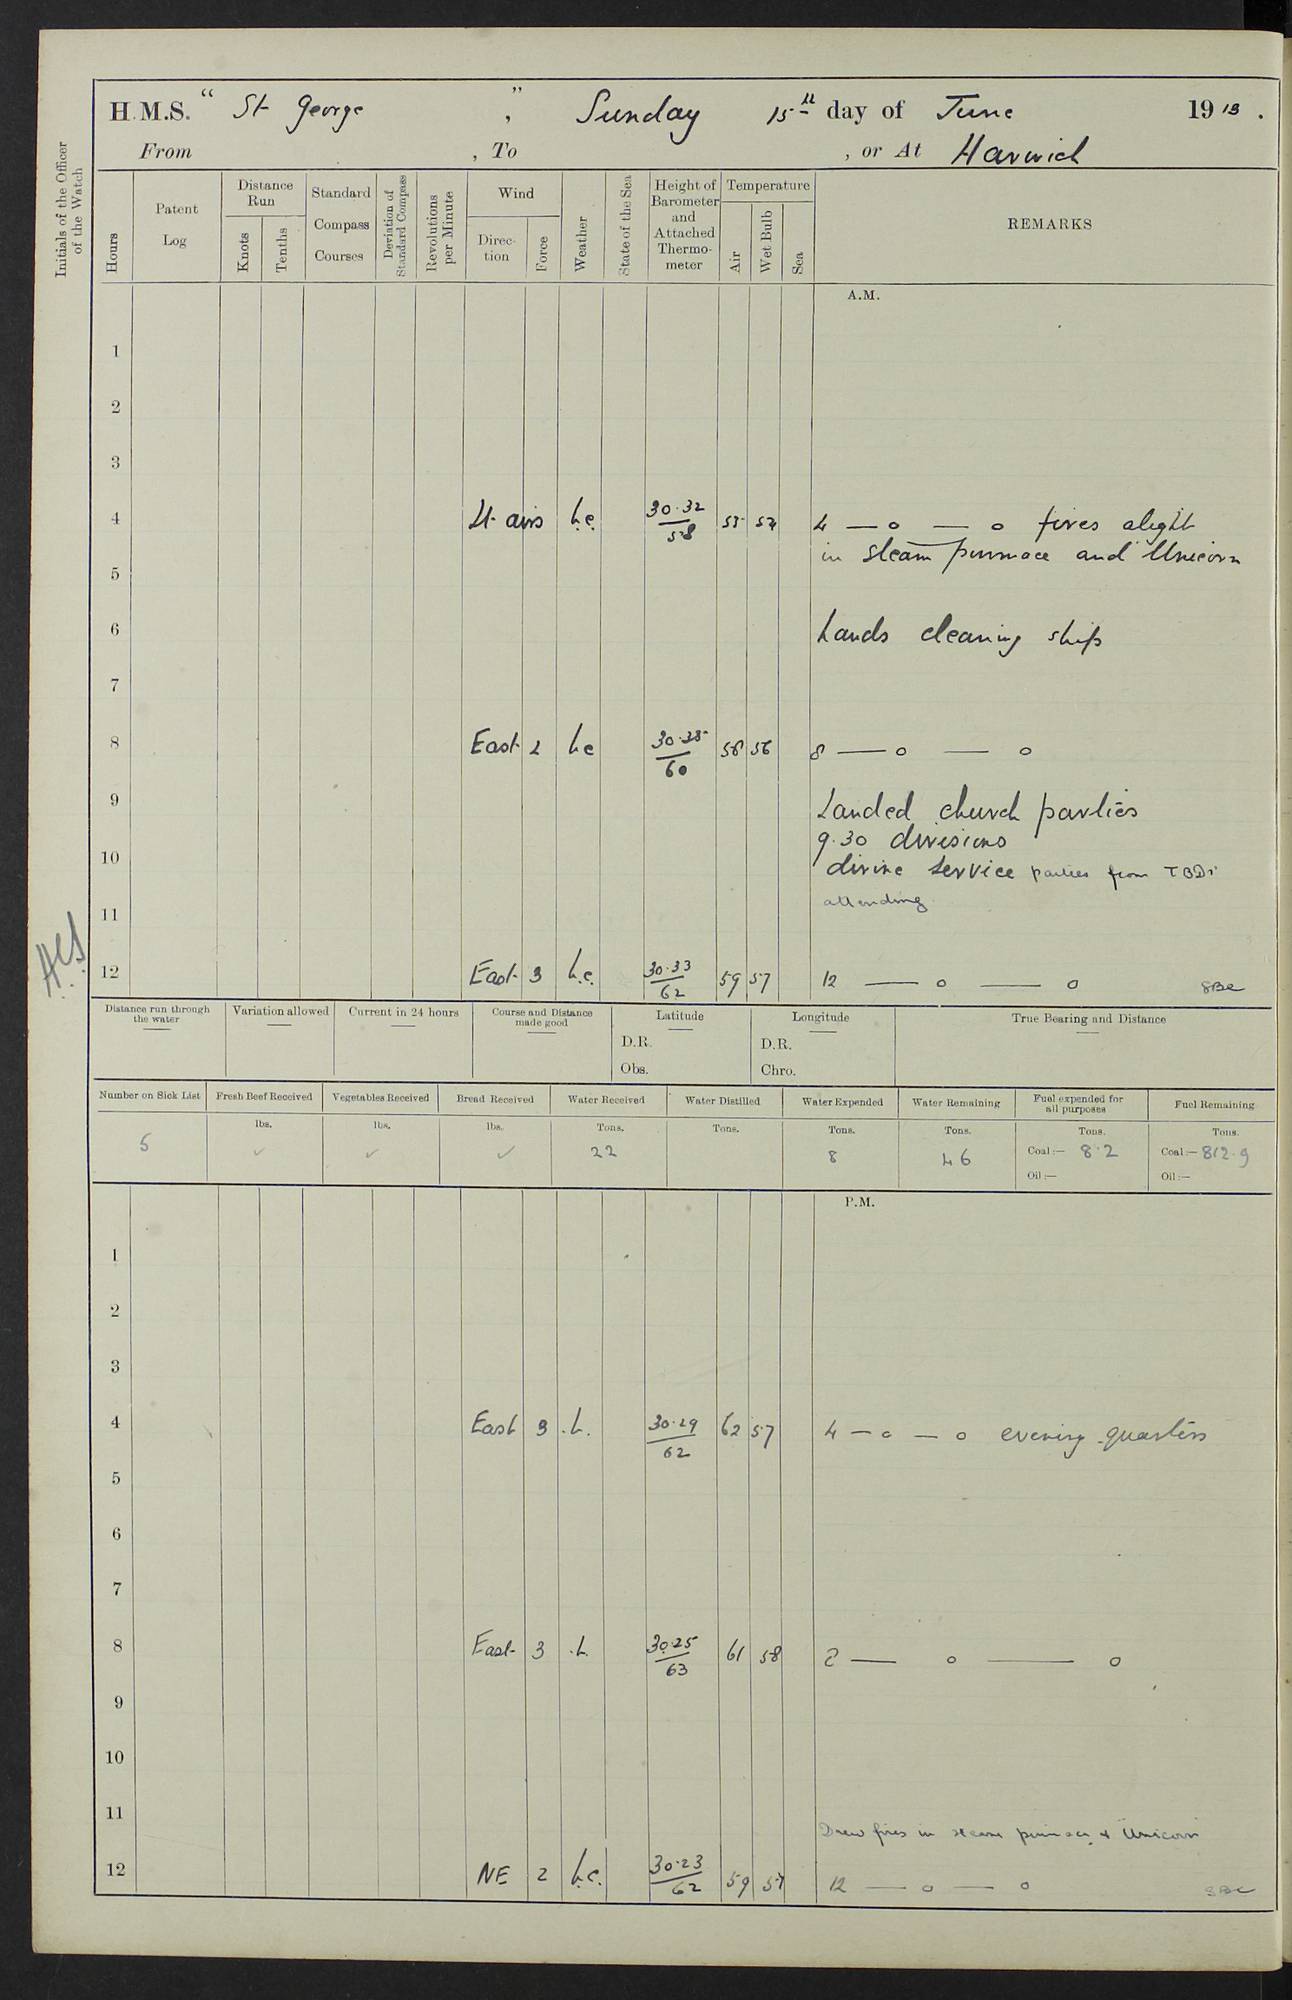 H.M.S. " St George " , Sunday 15th day of June 1913 .
From , To , or At Harwich
Initials of the Officer of the Watch
Hours
Patent Log
Distance Run
Knots
Tenths
Standard Compass Courses
Deviation of Standard Compass
Revolutions per Minute
Wind
Direction
Force
Weather
State of the Sea
Height of Barometer and Attached Thermometer
Temperature
Air
Wet Bulb
Sea
REMARKS
A.M.
1
2
3
4 Lt airs b.c. 30.32 / 58 55 54 4 — o — o fires alight
in steam pinnace and "Unicorn
5
6 hands cleaning ship
7
8 East 2 bc 30.35 / 60 58 56 8 — o — o
9 Landed church parties
9.30 divisions
10 divine service parties from TBDs
attending
11
12 East 3 b.c. 30.33 / 62 59 57 12 — o — o SBC
Distance run through the water
Variation allowed
Current in 24 hours
Course and Distance made good
Latitude
D.R.
Obs.
Longitude
D.R.
Chro.
True Bearing and Distance
Number on Sick List
Fresh Beef Received
Vegetables Received
Bread Received
Water Received
Water Distilled
Water Expended
Water Remaining
Fuel expended for all purposes
Fuel Remaining
lbs. lbs. lbs. Tons. Tons. Tons. Tons. Tons. Tons.
5 ✓ ✓ ✓ 22 8 46 Coal:— 8.2 Coal:— 812.9
Oil:— Oil:—
P.M.
1
2
3
4 East 3 .b. 30.29 / 62 62 57 4 — o — o evening quarters
5
6
7
8 East 3 .b. 30.25 / 63 61 58 8 — o — o
9
10
11
Drew fires in steam pinnace & "Unicorn"
12 NE 2 b.c. 30.23 / 62 59 57 12 — o — o SBC